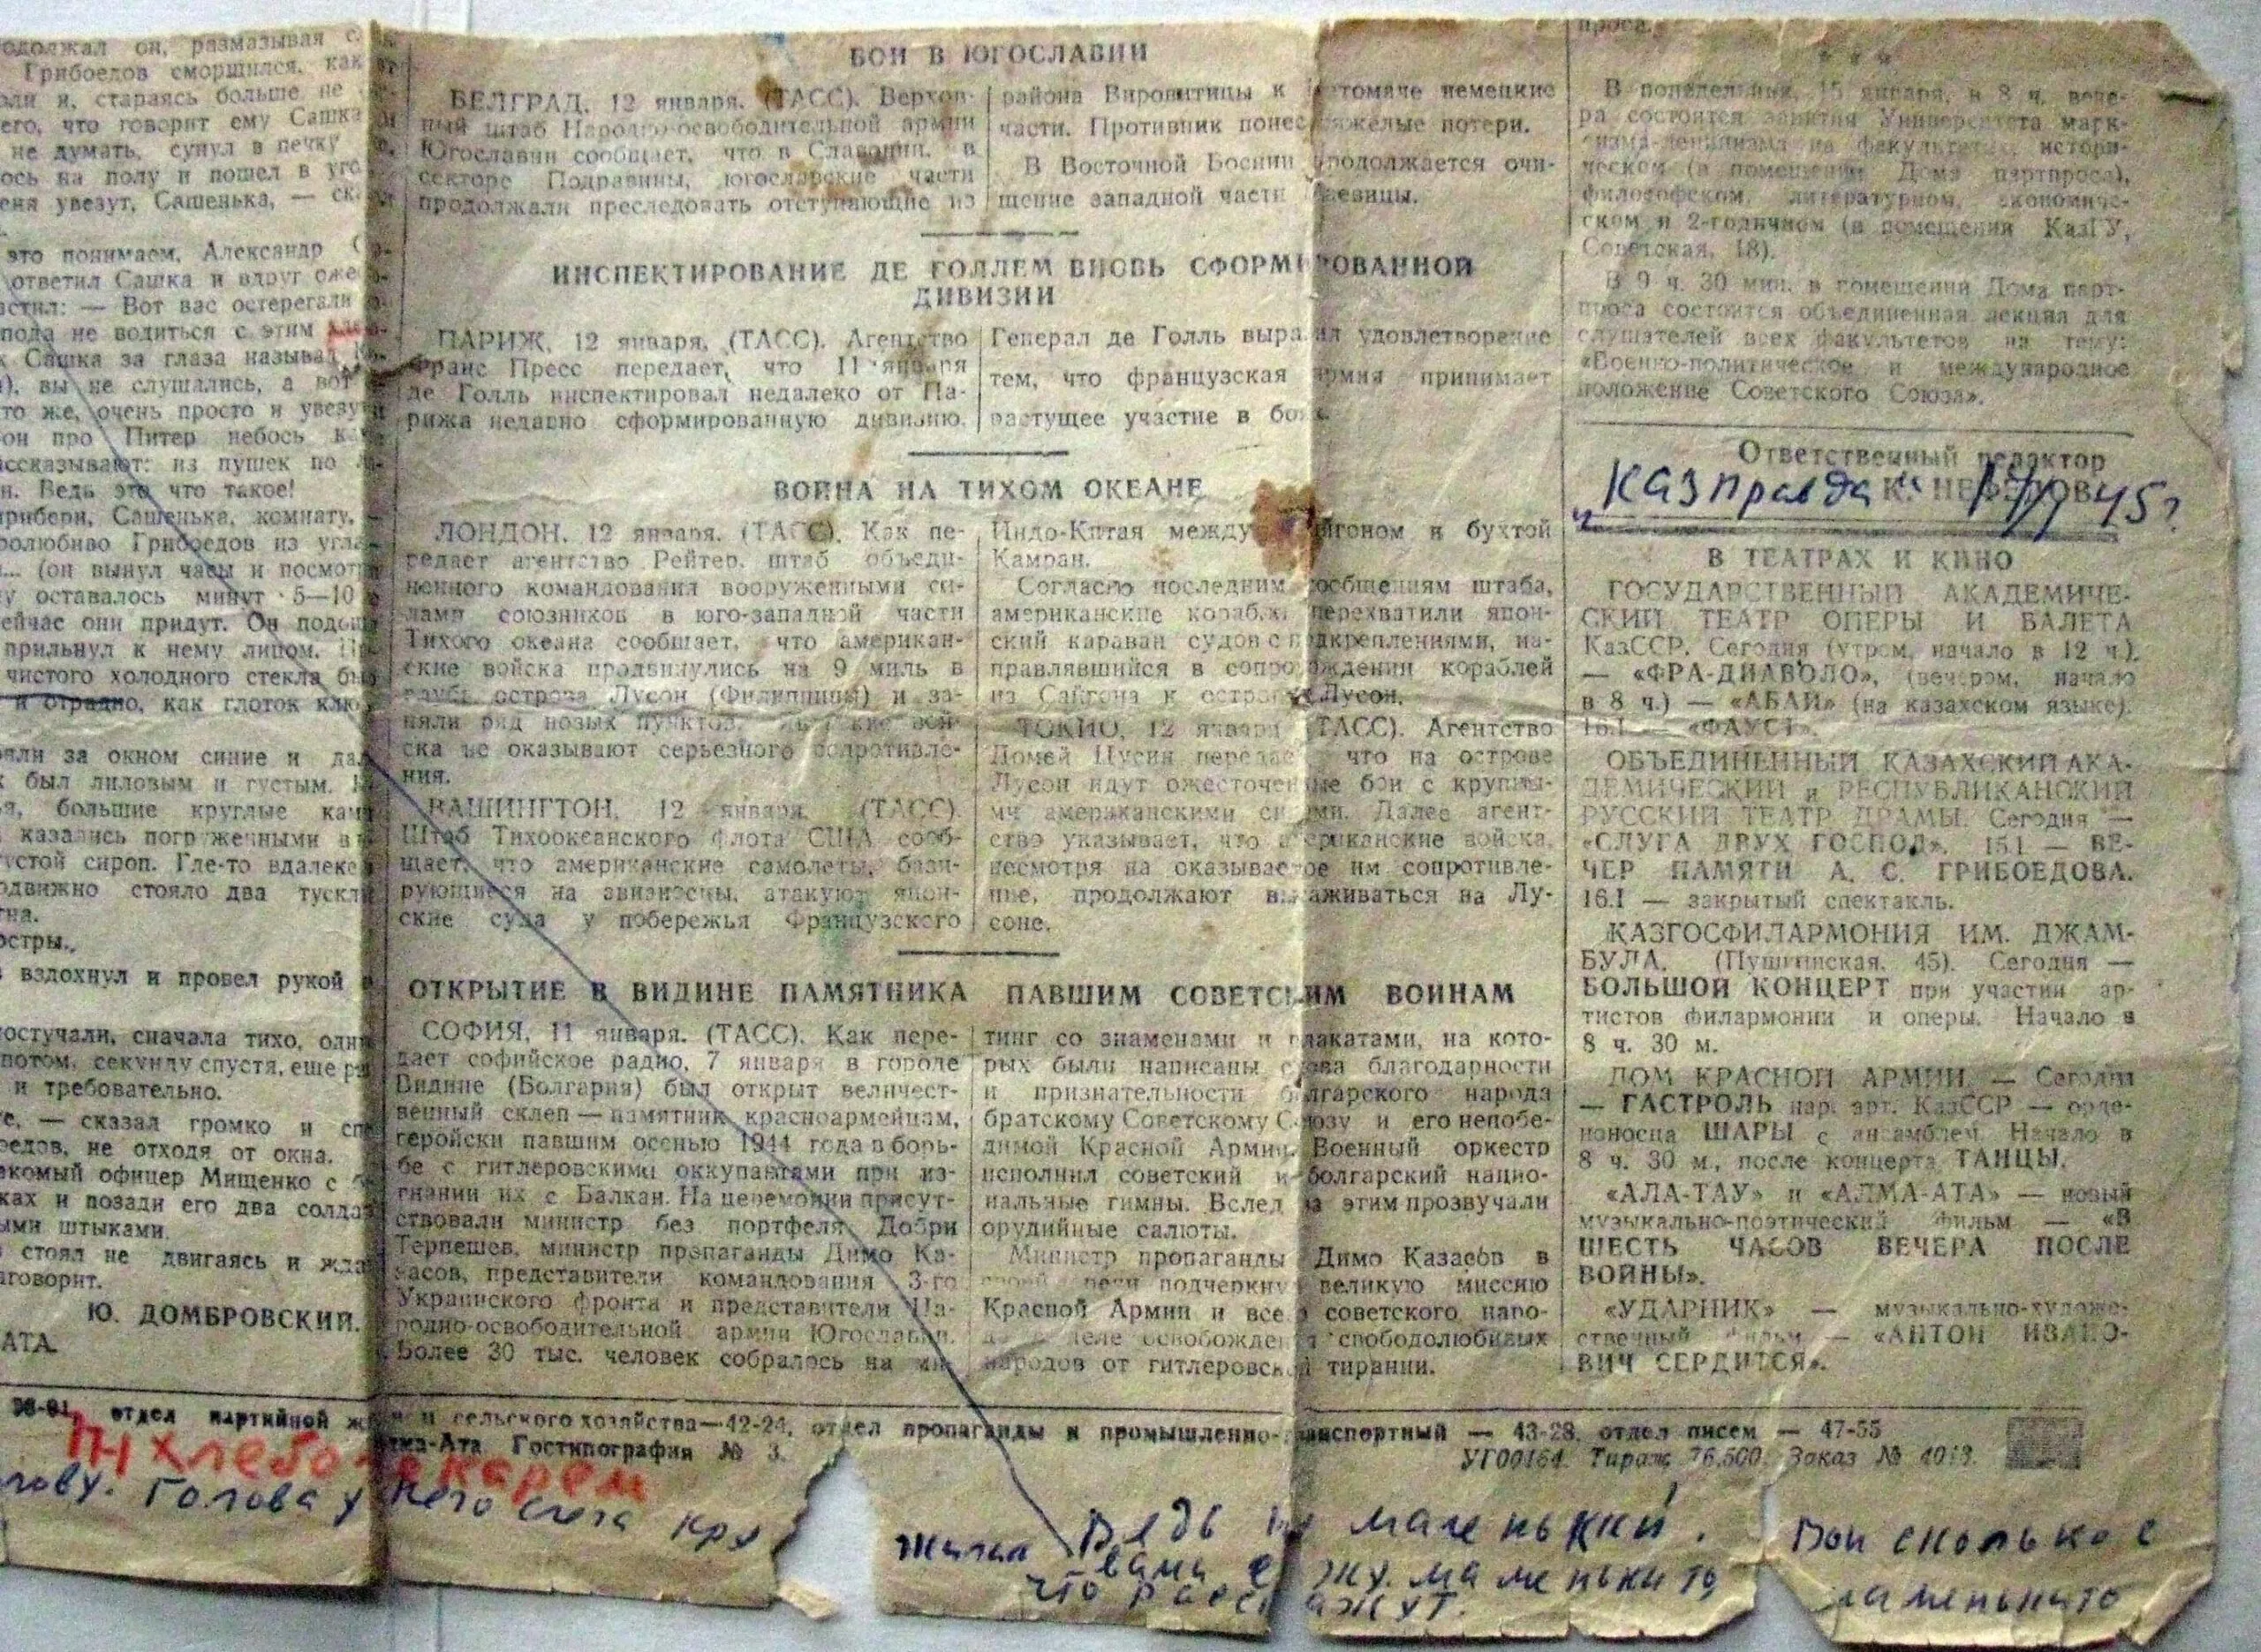 одолжал он, размазывая
Грибоедов сморщился, как
и, стараясь больше не
его, что говорит ему Сашка
не думать, сунул в печку
ось на полу и пошел в уго
еня увезут, Сашенька, —
это понимаем, Александр
ответил Сашка и вдруг
стил: — Вот вас остерегали
пода не водиться с этим
Сашка за глаза называл
вы не слушались, а вот
то же, очень просто и увезут
он про Питер небось
ссказывают: из пушек по
н. Ведь это что такое!
рибери, Сашенька, комнату,
ролюбиво Грибоедов из угла
... (он вынул часы и посмот
у оставалось минут 5—10
ейчас они придут. Он подош
прильнул к нему лицом.
чистого холодного стекла бы
и отрадно, как глоток клю
яли за окном синие и
был лиловым и густым.
я, большие круглые кам
казались погруженными в
устой сироп. Где-то вдалеке
одвижно стояло два тускл
на.
остры.,
вздохнул и провел рукой
остучали, сначала тихо, одн
потом, секунду спустя, еще
и требовательно.
е, — сказал громко и
едов, не отходя от окна.
комый офицер Мищенко с
ках и позади его два солда
ыми штыками.
стоял не двигаясь и жда
говорит.
Ю. ДОМБРОВСКИЙ.
АТА.
БОИ В ЮГОСЛАВИИ
БЕЛГРАД, 12 января. (ТАСС). Верхов-
ный штаб Народно-освободительной армии
Югославии сообщает, что в Славонии, в
секторе Подравины, югославские части
продолжали преследовать отступающие из
района Вировитицы к томаче немецкие
части. Противник понес тяжелые потери.
В Восточной Боснии продолжается очи-
щение западной части евицы.
ИНСПЕКТИРОВАНИЕ ДЕ ГОЛЛЕМ ВНОВЬ СФОРМИРОВАННОЙ
ДИВИЗИИ
ПАРИЖ, 12 января. (ТАСС). Агентство
Франс Пресс передает, что 11 января
де Голль инспектировал недалеко от Па-
рижа недавно сформированную дивизию.
Генерал де Голль выразил удовлетворение
тем, что французская армия принимает
растущее участие в боях.
ВОЙНА НА ТИХОМ ОКЕАНЕ
ЛОНДОН, 12 января. (ТАСС). Как пе-
редает агентство Рейтер, штаб объеди-
ненного командования вооруженными си-
лами союзников в юго-западной части
Тихого океана сообщает, что американ-
ские войска продвинулись на 9 миль в
глубь острова Лусон (Филиппины) и за-
няли ряд новых пунктов. Японские вой-
ска не оказывают серьезного сопротивле-
ния.
ВАШИНГТОН, 12 января. (ТАСС).
Штаб Тихоокеанского флота США сооб-
щает, что американские самолеты, бази-
рующиеся на авианосцы, атакуют япон-
ские суда у побережья Французского
Индо-Китая между Сайгоном и бухтой
Камран.
Согласно последним сообщениям штаба,
американские корабли перехватили япон-
ский караван судов с подкреплениями, на-
правлявшийся в сопровождении кораблей
из Сайгона к острову Лусон.
ТОКИО, 12 января (ТАСС). Агентство
Домей Цусин передает, что на острове
Лусон идут ожесточенные бои с крупны-
ми американскими силами. Далее агент-
ство указывает, что американские войска,
несмотря на оказываемое им сопротивле-
ние, продолжают высаживаться на Лу-
соне.
ОТКРЫТИЕ В ВИДИНЕ ПАМЯТНИКА ПАВШИМ СОВЕТСКИМ ВОИНАМ
СОФИЯ, 11 января. (ТАСС). Как пере-
дает софийское радио, 7 января в городе
Видине (Болгария) был открыт величест-
венный склеп — памятник красноармейцам,
геройски павшим осенью 1944 года в борь-
бе с гитлеровскими оккупантами при из-
гнании их с Балкан. На церемонии присут-
ствовали министр без портфеля Добри
Терпешев, министр пропаганды Димо Ка-
засов, представители командования 3-го
Украинского фронта и представители На-
родно-освободительной армии Югославии.
Более 30 тыс. человек собралось на ми-
тинг со знаменами и плакатами, на кото-
рых были написаны слова благодарности
и признательности болгарского народа
братскому Советскому Союзу и его непобе-
димой Красной Армии. Военный оркестр
исполнил советский и болгарский нацио-
нальные гимны. Вслед за этим прозвучали
орудийные салюты.
Министр пропаганды Димо Казасов в
своей речи подчеркнул великую миссию
Красной Армии и всего советского наро-
да в деле освобождения свободолюбивых
народов от гитлеровской тирании.
проса.
* * *
В понедельник, 15 января, в 8 ч. вече-
ра состоятся занятия Университета марк-
сизма-ленинизма на факультетах: истори-
ческом (в помещении Дома партпроса),
философском, литературном, экономиче-
ском и 2-годичном (в помещении КазГУ,
Советская, 18).
В 9 ч. 30 мин. в помещении Дома парт-
проса состоится объединенная лекция для
слушателей всех факультетов на тему:
«Военно-политическое и международное
положение Советского Союза».
Ответственный редактор
К. НЕФЕДОВ.
„Казправда“ 14/I 45г
В ТЕАТРАХ И КИНО
ГОСУДАРСТВЕННЫЙ АКАДЕМИЧЕ-
СКИЙ ТЕАТР ОПЕРЫ И БАЛЕТА
КазССР. Сегодня (утром, начало в 12 ч.).
— «ФРА-ДИАВОЛО», (вечером, начало
в 8 ч.) — «АБАЙ» (на казахском языке).
16.I — «ФАУСТ».
ОБЪЕДИНЕННЫЙ КАЗАХСКИЙ АКА-
ДЕМИЧЕСКИЙ и РЕСПУБЛИКАНСКИЙ
РУССКИЙ ТЕАТР ДРАМЫ. Сегодня —
«СЛУГА ДВУХ ГОСПОД». 15.I — ВЕ-
ЧЕР ПАМЯТИ А. С. ГРИБОЕДОВА.
16.I — закрытый спектакль.
КАЗГОСФИЛАРМОНИЯ ИМ. ДЖАМ-
БУЛА. (Пушкинская, 45). Сегодня —
БОЛЬШОЙ КОНЦЕРТ при участии ар-
тистов филармонии и оперы. Начало в
8 ч. 30 м.
ДОМ КРАСНОЙ АРМИИ. — Сегодня
— ГАСТРОЛЬ нар. арт. КазССР — орде-
ноносца ШАРЫ с ансамблем. Начало в
8 ч. 30 м., после концерта ТАНЦЫ.
«АЛА-ТАУ» и «АЛМА-АТА» — новый
музыкально-поэтический фильм — «В
ШЕСТЬ ЧАСОВ ВЕЧЕРА ПОСЛЕ
ВОЙНЫ».
«УДАРНИК» — музыкально-художе-
ственный фильм — «АНТОН ИВАНО-
ВИЧ СЕРДИТСЯ».
отдел партийной жизни и сельского хозяйства—42-24, отдел пропаганды и промышленно-транспортный — 43-28, отдел писем — 47-55
Алма-Ата Гостипография № 3.
УГ00164. Тираж 76.500. Заказ № 4013.
хлебопекарем
лову. Голова у него
Ведь не маленький.
вами
что расскажут.
Вон сколько с
маменькито